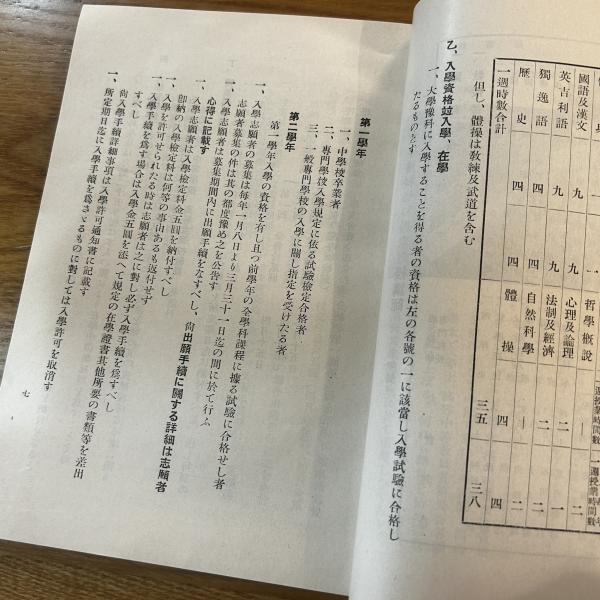 哲學槪說 一 二
國語及漢文 九 九 心理及論理 二 二
英吉利語 九 九 法制及經濟 二 一
獨逸語 四 四 自然科學 — 二
歷史 四 四 體操 四 四
一週時數合計 三五 三八
但し、體操は敎練及武道を含む
乙、入學資格竝入學、在學
一、大學豫科に入學することを得る者の資格は左の各號の一に該當し入學試驗に合格し
たるものとす
第一學年
一、中學校卒業者
二、專門學校入學規定に依る試驗檢定合格者
三、一般專門學校の入學に關し指定を受けたる者
第二學年
第一學年入學の資格を有し且つ前學年の全學科課程に據る試驗に合格せし者
一、入學志願者の募集は每年一月八日より三月三十一日迄の間に於て行ふ
志願者募集の件は其の都度豫め之を公吿す
一、入學志願者は募集期間內に出願手續をなすべし、尙出願手續に關する詳細は志願者
心得に記載す
一、入學志願者は入學檢定料金五圓を納付すべし
卽納の入學檢定料は何等の事由あるも返付せず
一、入學を許可せられたる時は志願者は之に對し必ず入學手續を爲すべし
入學手續を爲す場合は入學金五圓を添へて規定の在學證書其他所要の書類等を差出
すべし
尙入學手續詳細事項は入學許可通知書に記載す
一、所定期日迄に入學手續を爲さざるものに對しては入學許可を取消す
七